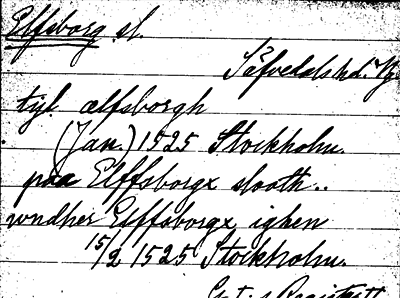 Elfsborg sl.
Säfvedals hd. Vg.
tyl. ælfsborgh
(Jan.) 1525 Stockholm.
paa Elffsborgx slooth..
wndher Elffsborgx, ighen
15/2 1525 Stockholm.